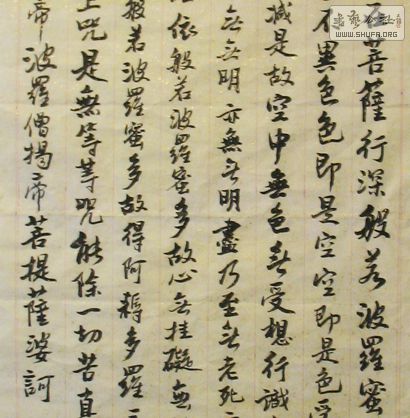 在菩薩行深般若波羅蜜
不異色色即是空空即是色受
減是故空中無色无受想行識
无无明亦無无明盡乃至无老死
依般若波羅蜜多故心无挂礙無
般若波羅蜜多故得阿耨多羅三
上咒是無等等咒能除一切苦真
帝波羅僧揭帝菩提薩婆訶
WWW.SHUFA.ORG